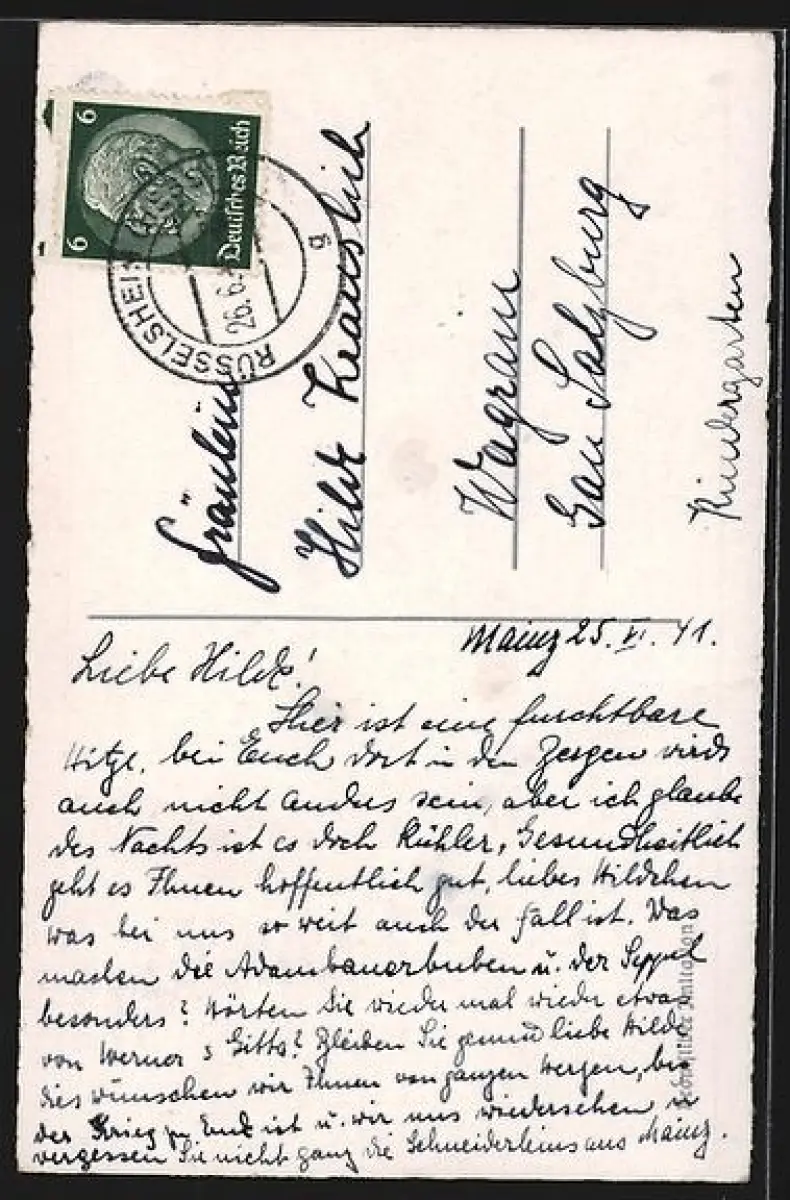 6 6
Deutsches Reich
RÜSSELSHEIM
26.6.
g
Fräulein
Hilde
Wagrain
Gau Salzburg
Kindergarten
Mainz 25. VI. 41.
Liebe Hilde!
Hier ist eine furchtbare
Hitze, bei Euch dort in den Bergen wirds
auch nicht anders sein, aber ich glaube
des Nachts ist es doch kühler, Gesundheitlich
geht es Ihnen hoffentlich gut, liebes Hildchen
was bei uns so weit auch der Fall ist. Was
machen die Adambauerbuben u. der Seppel
besonders? Hörten Sie wieder mal wieder etwas
von Werner Gitts? Bleiben Sie gesund liebe Hilde
dies wünschen wir Ihnen von ganzen Herzen, bis
der Krieg zu End ist u. wir uns wiedersehen u
vergessen Sie nicht ganz die Schneiderleins aus Mainz.